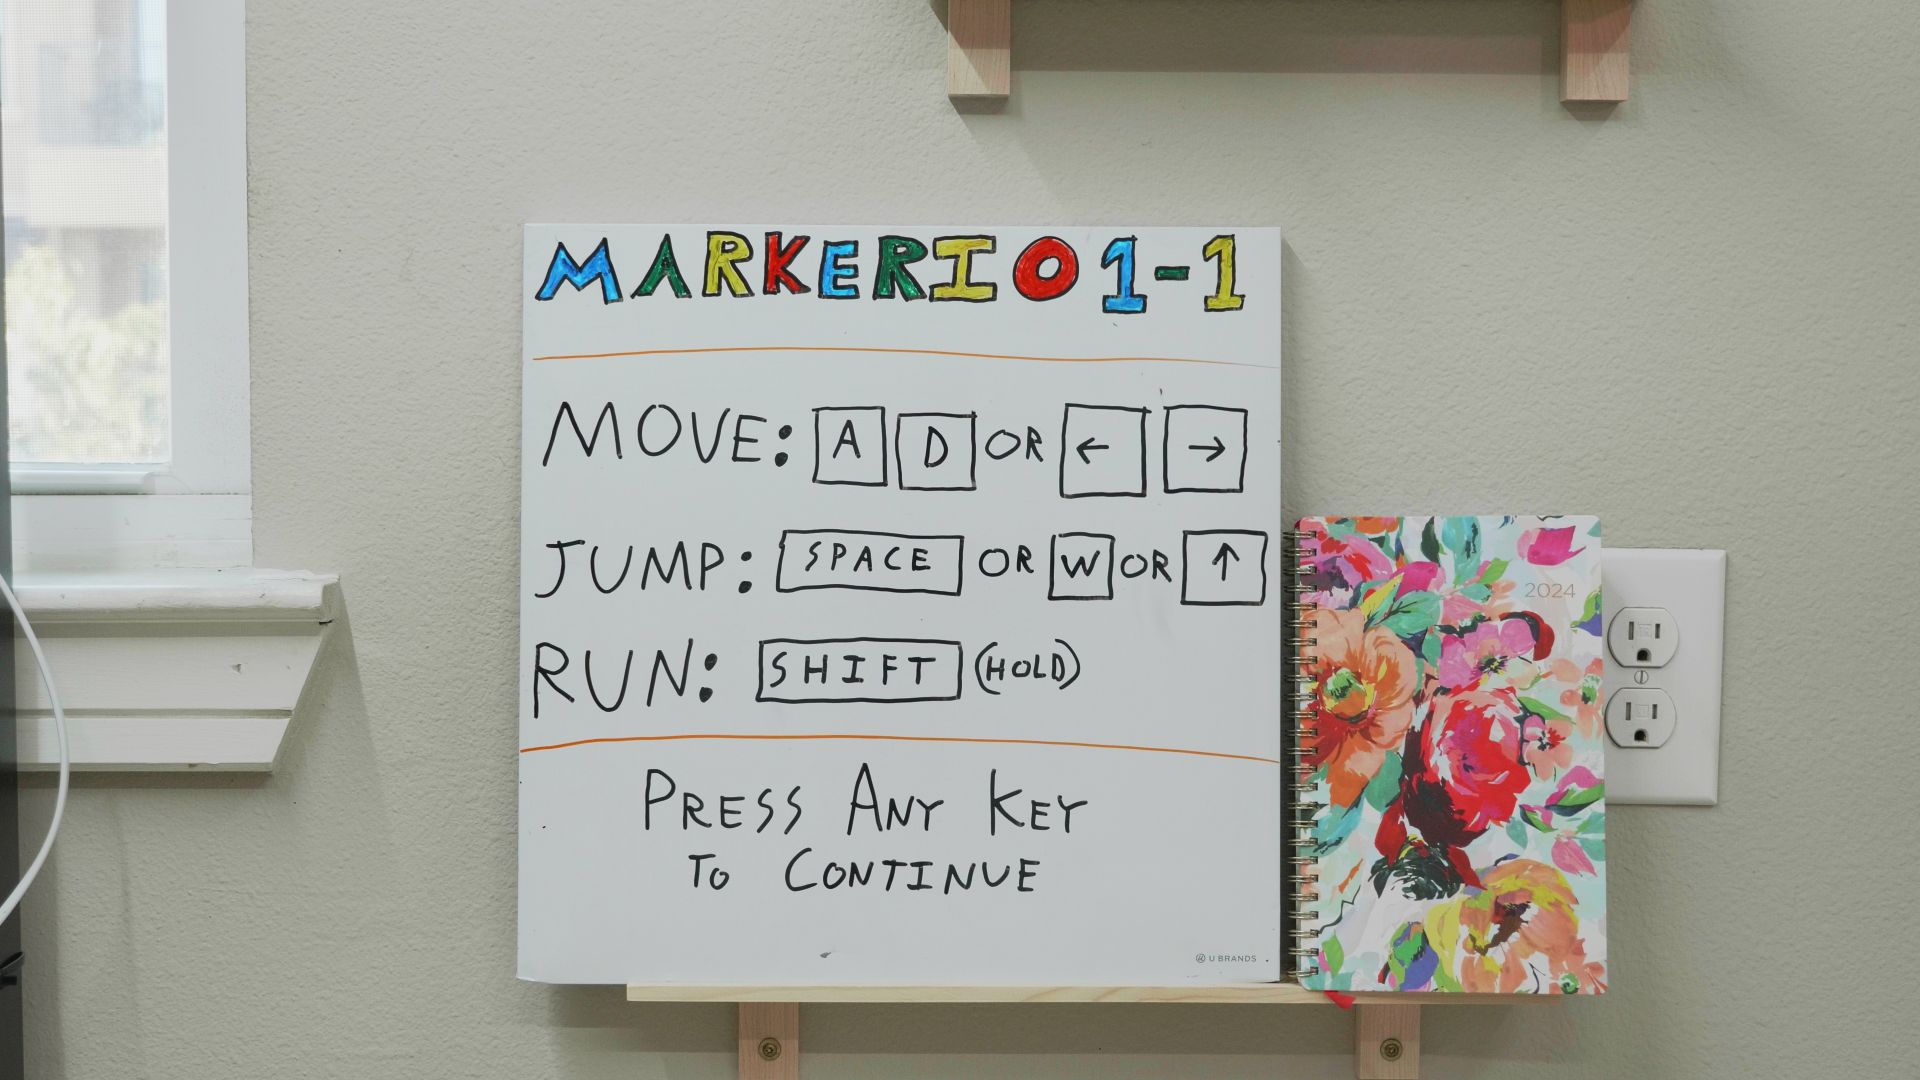 MARKERIO 1-1
MOVE: A D OR ← →
JUMP: SPACE OR W OR ↑
RUN: SHIFT (HOLD)
PRESS ANY KEY
TO CONTINUE
U BRANDS
2024